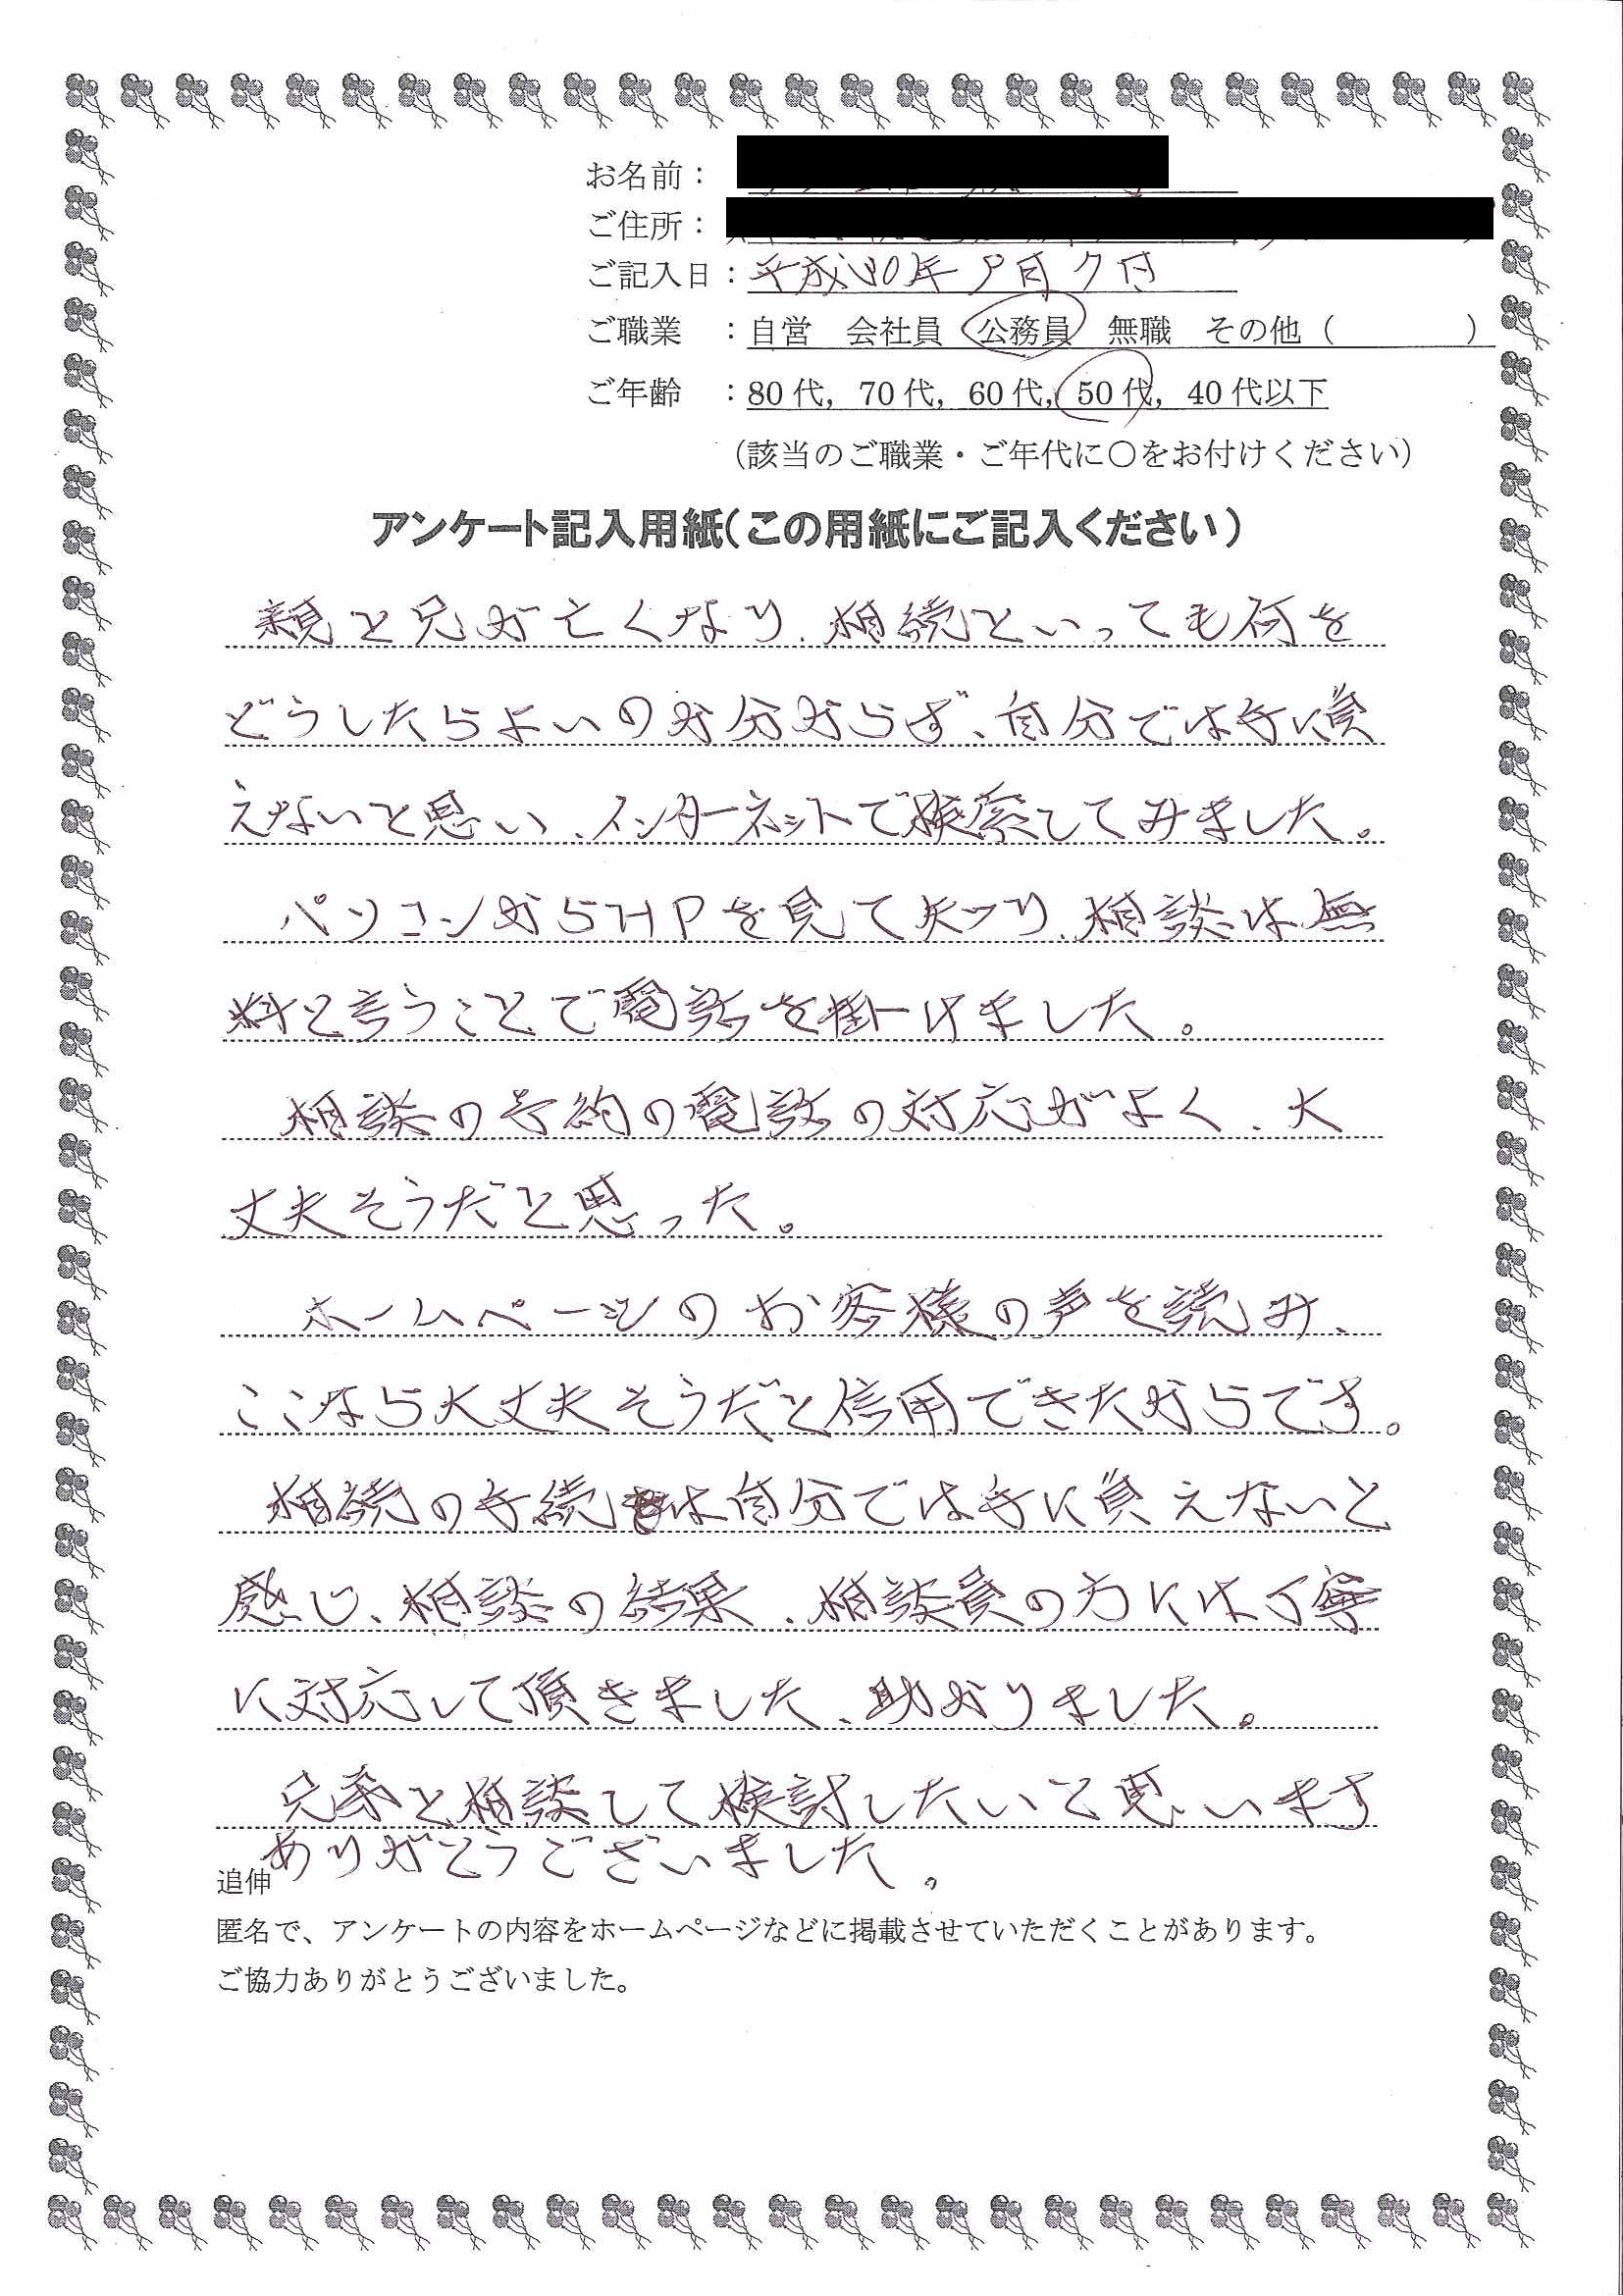 お名前：
ご住所：
ご記入日：平成30年9月7日
ご職業　：自営　会社員　公務員　無職　その他（　　　　）
ご年齢　：80代，70代，60代，50代，40代以下
（該当のご職業・ご年代に〇をお付けください）
アンケート記入用紙（この用紙にご記入ください）
親と兄が亡くなり、相続といっても何を
どうしたらよいのか分からず、自分では手に負
えないと思い、インターネットで検索してみました。
パソコンからHPを見て知り、相談は無
料と言うことで電話を掛けました。
相談の予約の電話の対応がよく、大
丈夫そうだと思った。
ホームページのお客様の声を読み、
ここなら大丈夫そうだと信用できたからです。
相続の手続は自分では手に負えないと
感じ、相談の結果、相談員の方には丁寧
に対応して頂きました、助かりました。
兄弟と相談して検討したいと思います
ありがとうございました。
追伸
匿名で、アンケートの内容をホームページなどに掲載させていただくことがあります。
ご協力ありがとうございました。